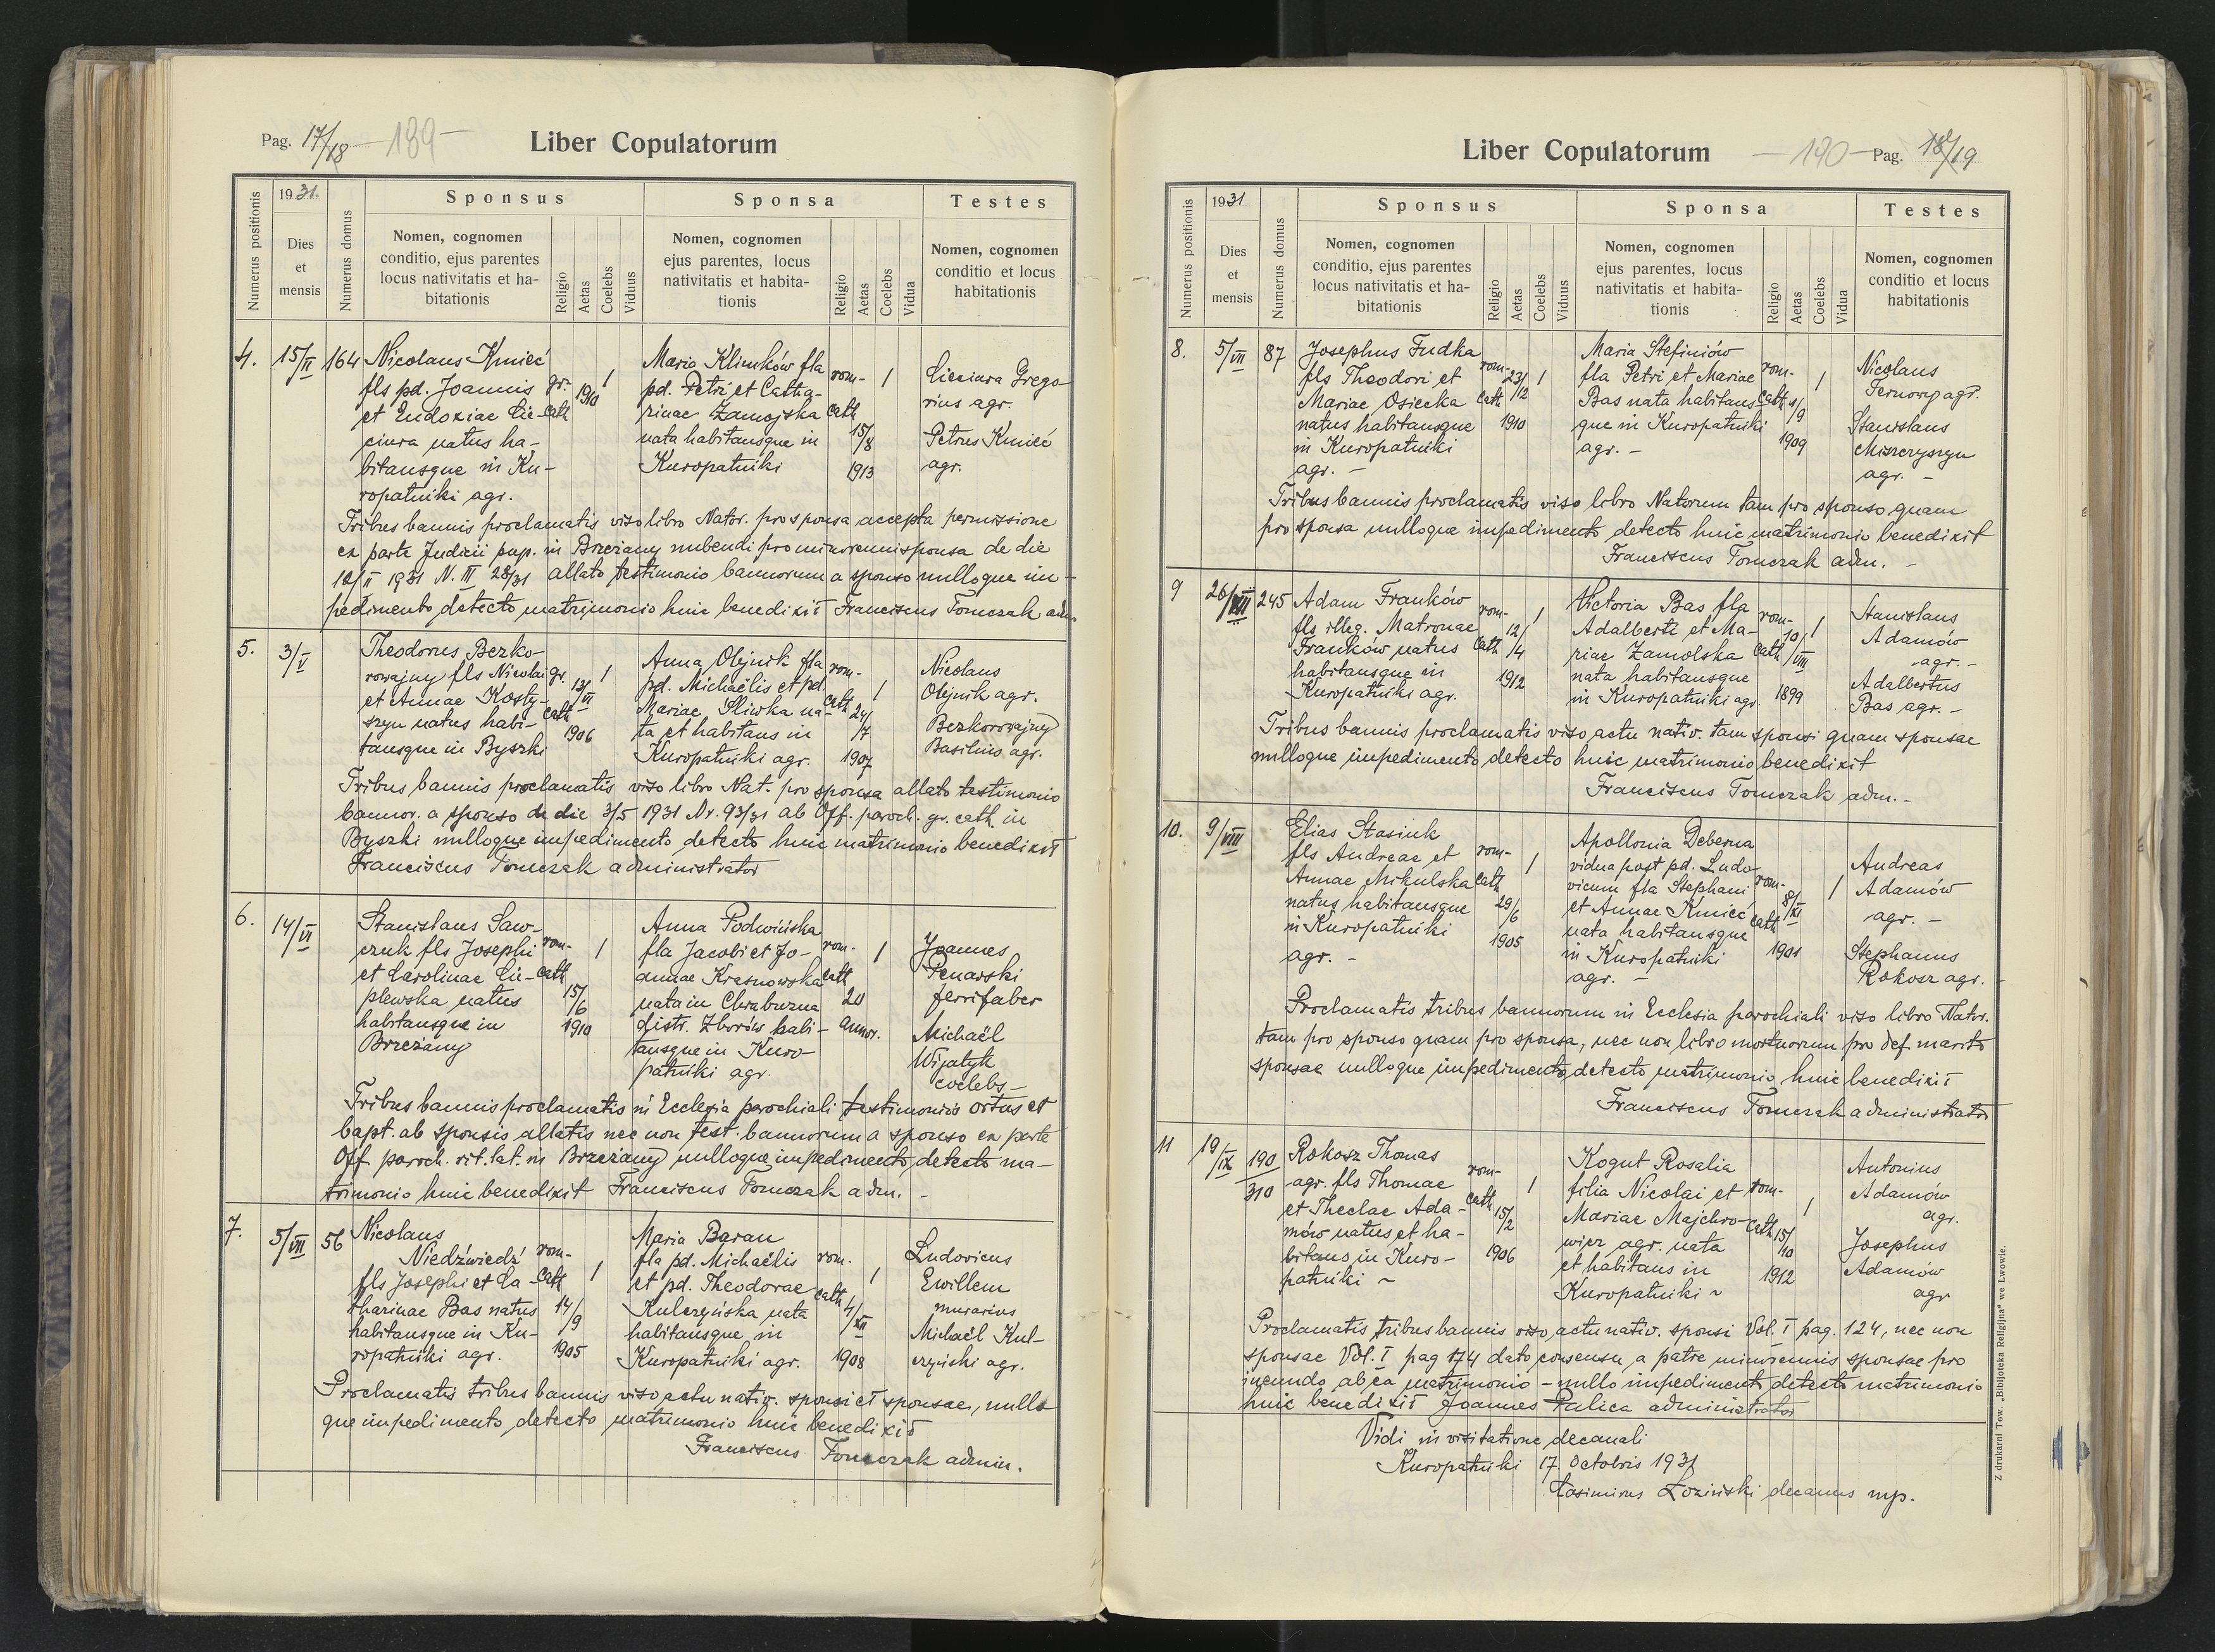 Pag. 17/18 — 189 —
Liber Copulatorum
Numerus positionis
1931.
Dies
et
mensis
Numerus domus
Sponsus
Nomen, cognomen
conditio, ejus parentes
locus nativitatis et ha-
bitationis
Religio
Aetas
Coelebs
Viduus
Sponsa
Nomen, cognomen
ejus parentes, locus
nativitatis et habita-
tionis
Religio
Aetas
Coelebs
Vidua
Testes
Nomen, cognomen
conditio et locus
habitationis
4. 15/II 164
Nicolaus Kmieć
fls pd. Joannis
et Eudoxiae Cie-
ciura natus ha-
bitansque in Ku-
ropatniki agr.
gr.-
cath
1910
1
Maria Klimków fla
pd. Petri et Catha-
rinae Zamojska
nata habitansque in
Kuropatniki
rom-
cath
15/8
1913
1
Cieciura Grego-
rius agr.
Petrus Kmieć
agr.
Tribus bannis proclamatis viso libro Nator. pro sponsa accepta permissione
ex parte Judicii pup. in Brzeżany nubendi pro minorennis sponsa de die
12/II 1931 N. III 28/31 allato testimonio bannorum a sponso nulloque im-
pedimento detecto matrimonio huic benedixit Franciscus Tomczak adm.
5. 3/V
Theodorus Bezko-
rowajny fls Nicolai
et Annae Kosty-
szyn natus habi-
tansque in Byszki
gr.
cath
13/VI
1906
1
Anna Olejnik fla
pd. Michaëlis et pd.
Mariae Śliwka na-
ta et habitans in
Kuropatniki agr.
rom-
cath
24/7
1907
1
Nicolaus
Olejnik agr.
Bezkorowajny
Basilius agr.
Tribus bannis proclamatis viso libro Nat. pro sponsa allato testimonio
bannor. a sponso de die 3/5 1931 Nr. 93/31 ab Off. paroch. gr. cath. in
Byszki nulloque impedimento detecto huic matrimonio benedixit
Franciscus Tomczak administrator
6. 14/VI
Stanislaus Saw-
czuk fls Josephi
et Carolinae Cie-
plewska natus
habitansque in
Brzeżany
rom-
cath
15/6
1910
1
Anna Podwińska
fla Jacobi et Jo-
annae Krasnowska
nata in Chrabuzna
distr. Zborów habi-
tansque in Kuro-
patniki agr.
rom-
cath
20
annor.
1
Joannes
Penarski
ferrifaber
Michaël
Wijatyk
coelebs —
Tribus bannis proclamatis in Ecclesia parochiali testimoniis ortus et
bapt. ab sponsis allatis nec non test. bannorum a sponso ex parte
Off. paroch. rit. lat. in Brzeżany nulloque impedimento detecto ma-
trimonio huic benedixit Franciscus Tomczak adm. -
7. 5/VII 56
Nicolaus
Niedźwiedź
fls Josephi et Ca-
tharinae Bas natus
habitansque in Ku-
ropatniki agr.
rom-
cath
14/9
1905
1
Maria Baran
fla pd. Michaëlis
et pd. Theodorae
Kulczyńska nata
habitansque in
Kuropatniki agr.
rom.
cath
4/XII
1908
1
Ludovicus
Ewillem
murarius
Michaël Kul-
czyński agr.
Proclamatis tribus bannis viso actu nativ. sponsi et sponsae, nullo
que impedimento detecto matrimonio huic benedixit
Franciscus Tomczak admin.
Liber Copulatorum
— 190 — Pag. 18/19
Numerus positionis
1931
Dies
et
mensis
Numerus domus
Sponsus
Nomen, cognomen
conditio, ejus parentes
locus nativitatis et ha-
bitationis
Religio
Aetas
Coelebs
Viduus
Sponsa
Nomen, cognomen
ejus parentes, locus
nativitatis et habita-
tionis
Religio
Aetas
Coelebs
Vidua
Testes
Nomen, cognomen
conditio et locus
habitationis
8. 5/VII 87
Josephus Fudka
fls Theodori et
Mariae Osiecka
natus habitansque
in Kuropatniki
agr. —
rom-
cath
23/12
1910
1
Maria Stefiniów
fla Petri et Mariae
Bas nata habitans
que in Kuropatniki
agr. —
rom-
cath
4/9
1909
1
Nicolaus
Ternowy agr.
Stanislaus
Miszczyszyn
agr. —
Tribus bannis proclamatis viso libro Natorum tam pro sponso quam
pro sponsa nulloque impedimento detecto huic matrimonio benedixit
Franciscus Tomczak adm. —
9 26/VII 245
Adam Franków
fls illeg. Matronae
Franków natus
habitansque in
Kuropatniki agr.
rom-
cath
12/4
1912
1
Victoria Bas fla
Adalberti et Ma-
riae Zamolska
nata habitansque
in Kuropatniki agr.
rom-
cath
10/VIII
1899
1
Stanislaus
Adamów
agr. —
Adalbertus
Bas agr. —
Tribus bannis proclamatis viso actu nativ. tam sponsi quam sponsae
nulloque impedimento detecto huic matrimonio benedixit
Franciscus Tomczak adm. -
10. 9/VIII
Elias Stasiuk
fls Andreae et
Annae Mikulska
natus habitansque
in Kuropatniki
agr. —
rom-
cath
29/6
1905
1
Apollonia Deberna
vidua post pd. Ludo-
vicum fla Stephani
et Annae Kmieć
nata habitansque
in Kuropatniki
agr. —
rom-
cath
8/XI
1901
1
Andreas
Adamów
agr. —
Stephanus
Rokosz agr.
Proclamatis tribus bannorum in Ecclesia parochiali viso libro Nator.
tam pro sponso quam pro sponsa, nec non libro mortuorum pro def. marito
sponsae nulloque impedimento detecto matrimonio huic benedixit
Franciscus Tomczak administrator
11 19/IX 190/310
Rokosz Thomas
agr. fls Thomae
et Theclae Ada-
mów natus et ha-
bitans in Kuro-
patniki ~
rom-
cath
15/2
1906
1
Kogut Rosalia
filia Nicolai et
Mariae Majchro-
wicz agr. nata
et habitans in
Kuropatniki ~
rom-
cath
15/10
1912
1
Antonius
Adamów
agr.
Josephus
Adamów
agr
Proclamatis tribus bannis viso actu nativ. sponsi Vol. I pag. 124, nec non
sponsae Vol. I pag 174 dato consensu a patre minorennis sponsae pro
ineundo ab ea matrimonio — nullo impedimento detecto matrimonio
huic benedixit Joannes Palica administrator
Vidi in visitatione decanali
Kuropatniki 17. Octobris 1931
Casimirus Łoziński decanus mp.
Z drukarni Tow. „Bibljoteka Religijna" we Lwowie.